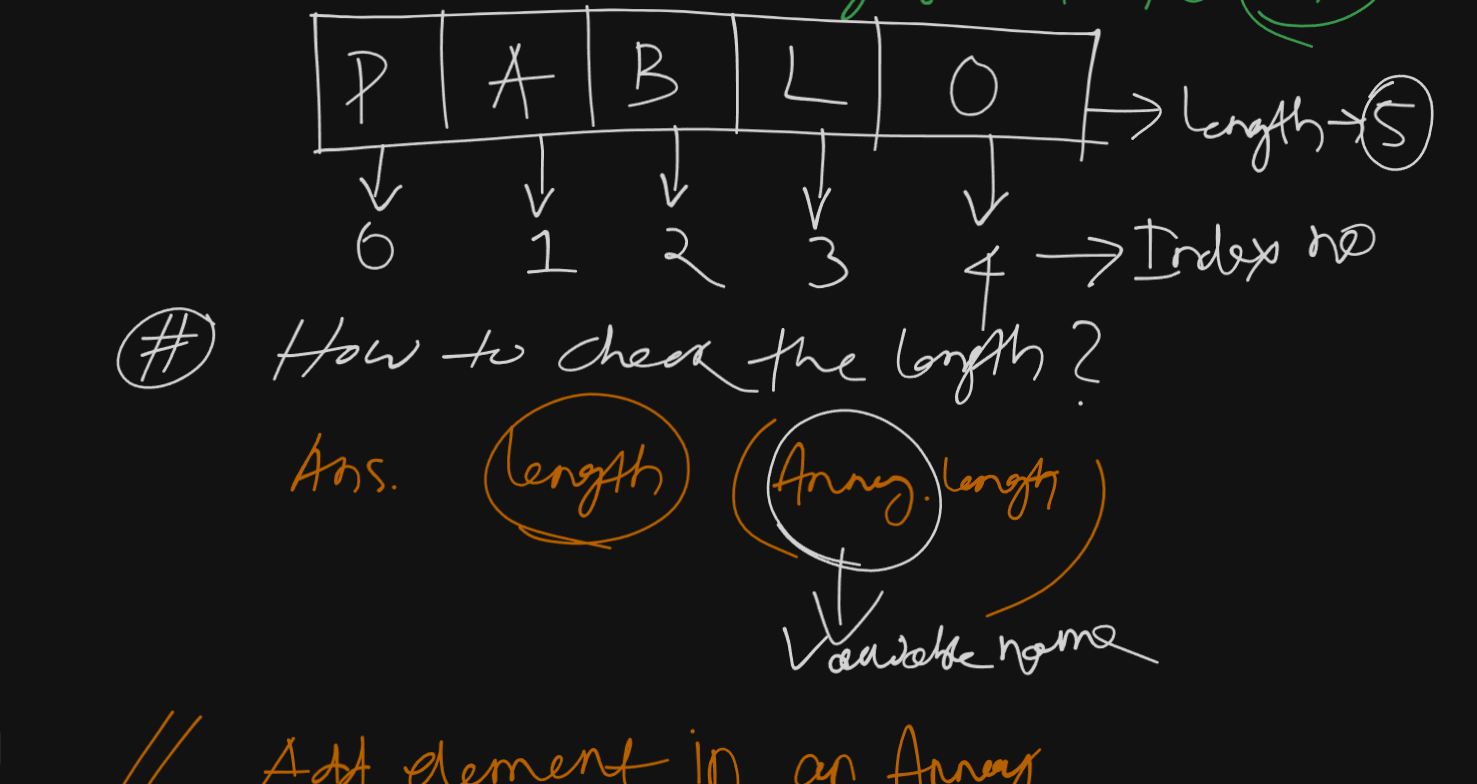 P A B L O → Length → 5
0 1 2 3 4 → Index no
# How to check the length?
Ans. length (Array.length)
Variable name
// Add element in an Array